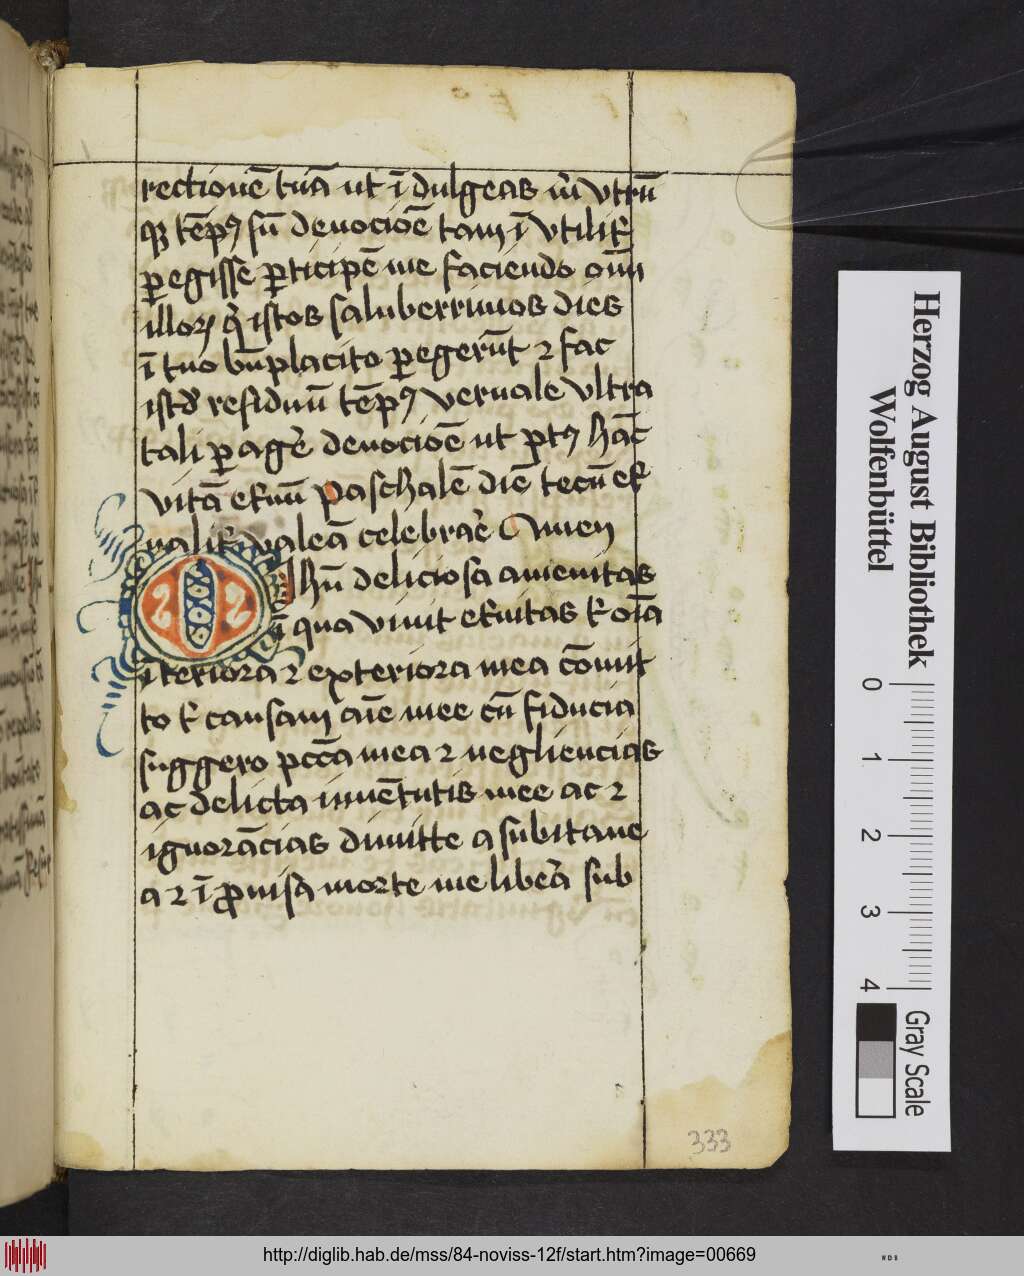 rectionē tuā ut ī dulgeas m̄ vtrū
qꝫ tēpꝰ sū deuocioē tam ī vtilit̄
ꝑegisse ꝑticipē me faciendo oīm
illoꝝ q̄ istos saluberrimos dies
ī tuo bn̄placito ꝑegerūt ⁊ fac
istđ residuū tēpꝰ vernale vltra
tali ꝑ agēr deuocioē ut ptꝰ hāc
vitā et̄nū paschalē diē tecū et̄
nalit̄ valeā celebrār̄ Amen
O Ihū deliciosa amenitas
ī qua viuit et̄nitas t̄ oīa
īteriora ⁊ exteriora mea cōmit
to t̄ causam aīe mee cū fiducia
suggero pccā mea ⁊ negliencias
ac delicta iuuētutis mee ac ⁊
ignorācias dimitte a subitane
a ⁊ ī ꝓuisa morte me liberā sub
333
Herzog August Bibliothek
Wolfenbüttel
0 1 2 3 4
Gray Scale
http://diglib.hab.de/mss/84-noviss-12f/start.htm?image=00669